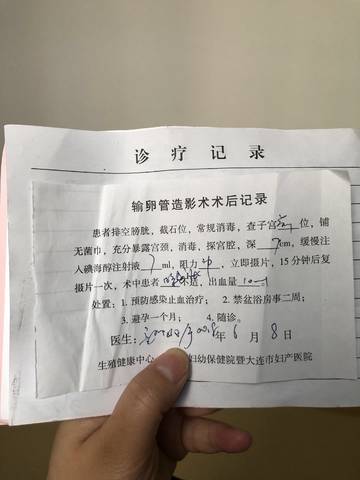 诊疗记录
输卵管造影术术后记录
患者排空膀胱,截石位,常规消毒,查子宫 位,铺
无菌巾,充分暴露宫颈,消毒,探宫腔,深 7 cm,缓慢注
入碘海醇注射液 7 ml,阻力 中,立即摄片,15分钟后复
摄片一次,术中患者 不适,出血量
处置:1. 预防感染止血治疗; 2. 禁盆浴房事二周;
3. 避孕一个月; 4. 随诊。
医生: 2018年 6 月 8 日
生殖健康中心 妇幼保健院暨大连市妇产医院